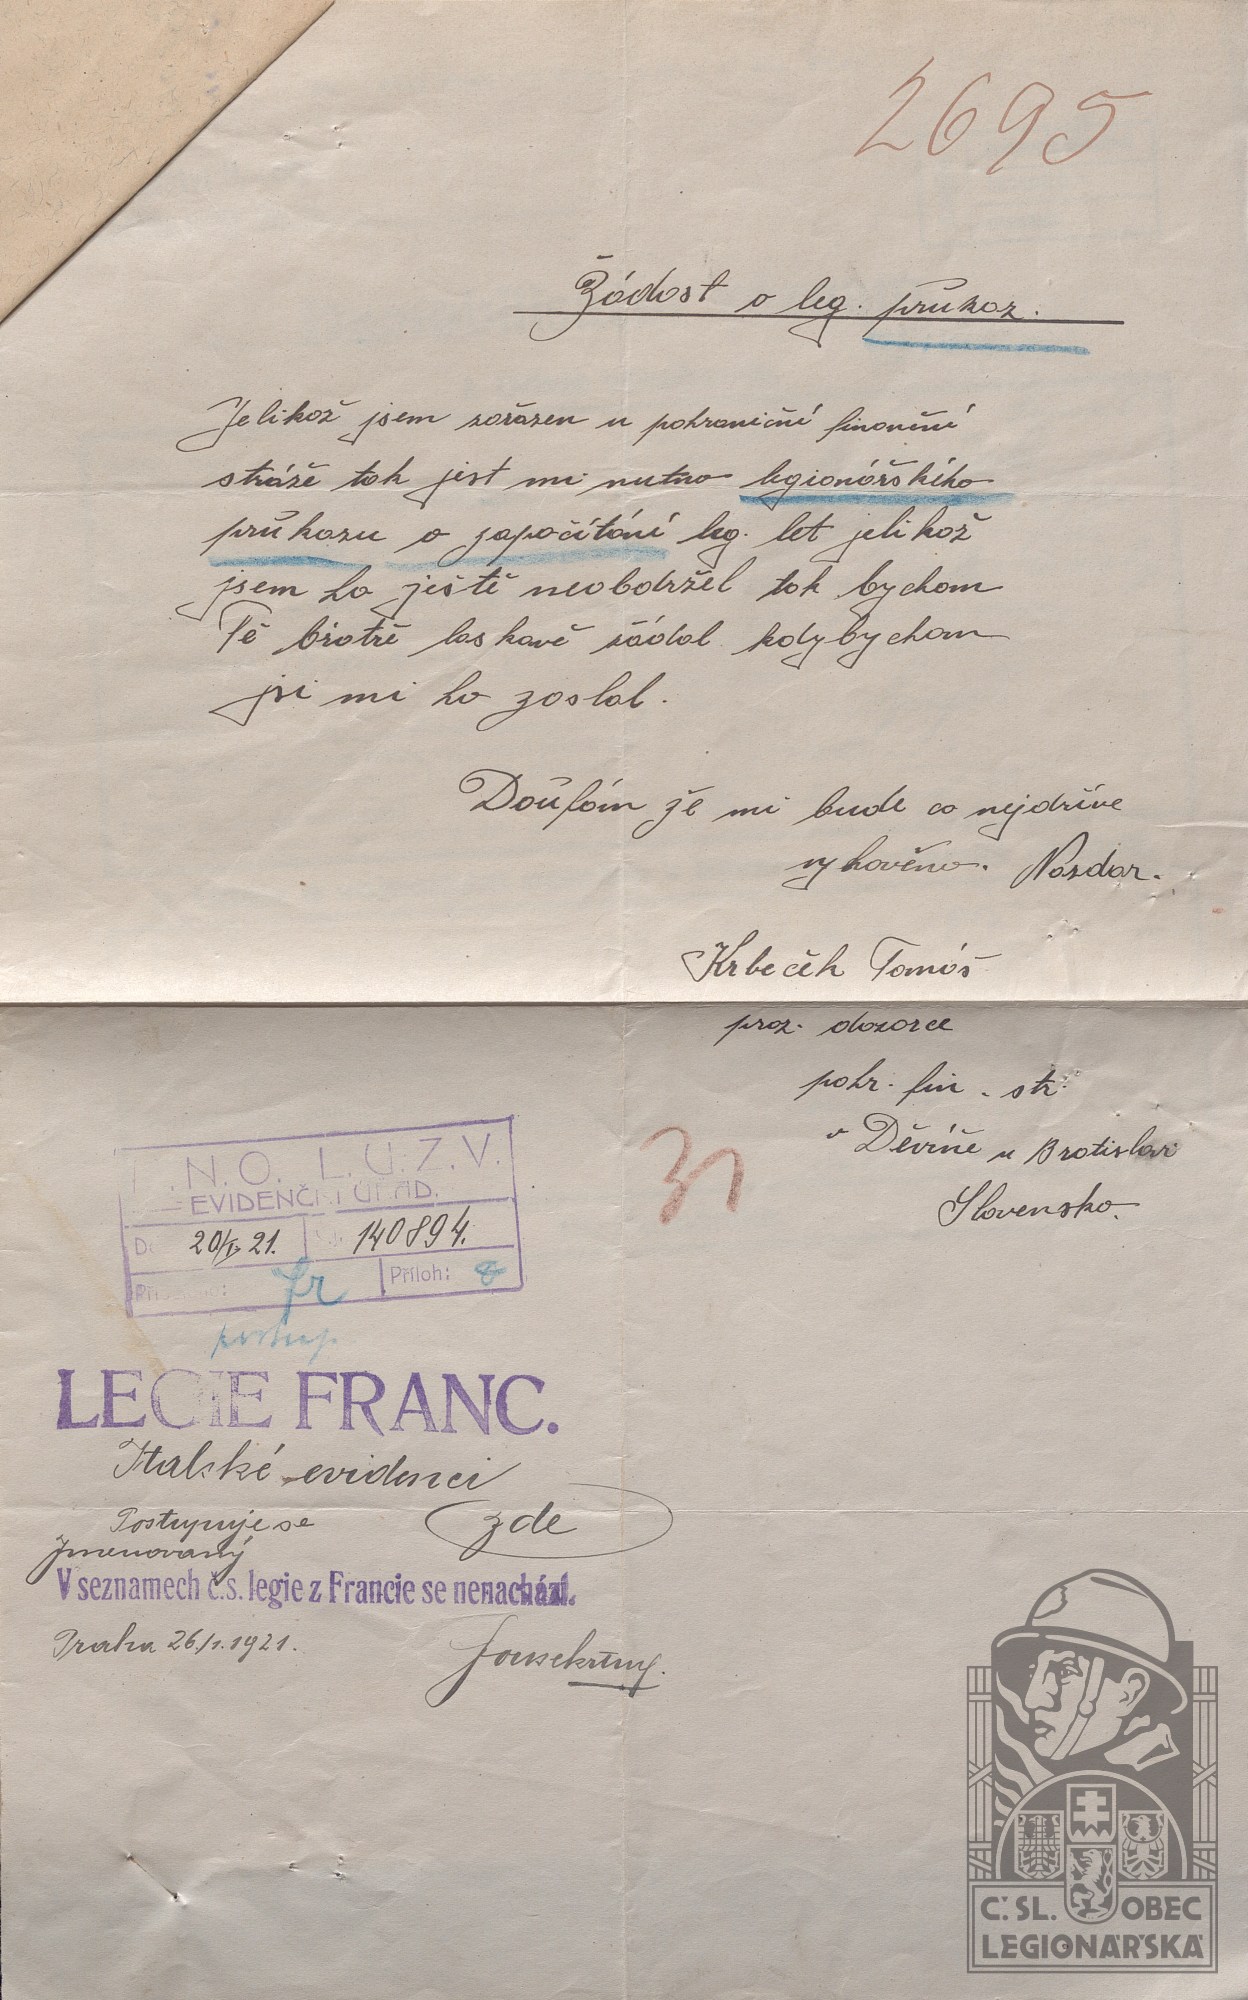 2695
Žádost o leg. průkaz.
Jelikož jsem zařazen u pohraniční finanční
stráže tak jest mi nutno legionářského
průkazu o započítání leg. let jelikož
jsem ho ještě neobdržel tak bychom
Tě bratře laskavě žádal kdybychom
jsi mi ho zaslal.
Doufám že mi bude co nejdříve
vyhověno. Nazdar.
Krbeček Tomáš
proz. dozorce
pohr. fin. str.
v Děvíně u Bratislavi
Slovensko.
31
N.O. L.U.Z.V.
EVIDENČNÍ ÚŘAD.
20/I 21. 140894.
fr Příloh:
postup.
LEGIE FRANC.
Italské evidenci
Postupuje se zde
Jmenovaný
V seznamech č.s. legie z Francie se nenachází.
Praha 26./1. 1921.
Č.SL. OBEC
LEGIONÁŘSKÁ